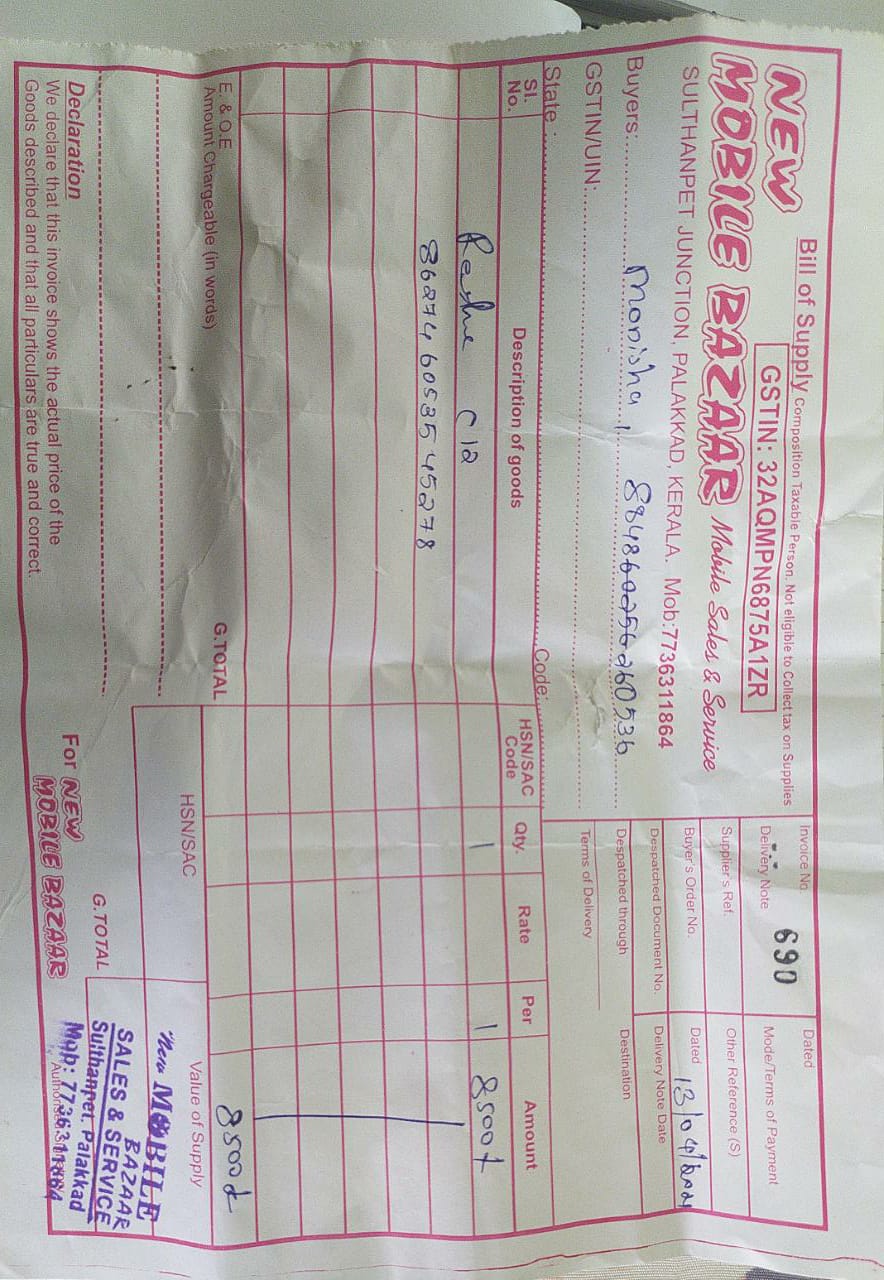 Bill of Supply Composition Taxable Person. Not eligible to Collect tax on Supplies
GSTIN: 32AQMPN6875A1ZR
NEW
MOBILE BAZAAR Mobile Sales & Service
SULTHANPET JUNCTION, PALAKKAD, KERALA. Mob:7736311864
Buyers: Monisha,
GSTIN/UIN:
State : Code:
Invoice No. 690 Dated
Delivery Note Mode/Terms of Payment
Supplier's Ref. Other Reference (S)
Buyer's Order No. Dated 13/04/
Despatched Document No. Delivery Note Date
Despatched through Destination
Terms of Delivery
Sl. No. Description of goods HSN/SAC Code Qty. Rate Per Amount
C12 1 1 8500
862746053545278
G.TOTAL 8500
E. & O.E
Amount Chargeable (in words)
HSN/SAC Value of Supply
G.TOTAL
Declaration
We declare that this invoice shows the actual price of the
Goods described and that all particulars are true and correct.
For NEW
MOBILE BAZAAR
New MOBILE
BAZAAR
SALES & SERVICE
Sulthanpet, Palakkad
Mob: 7736311864